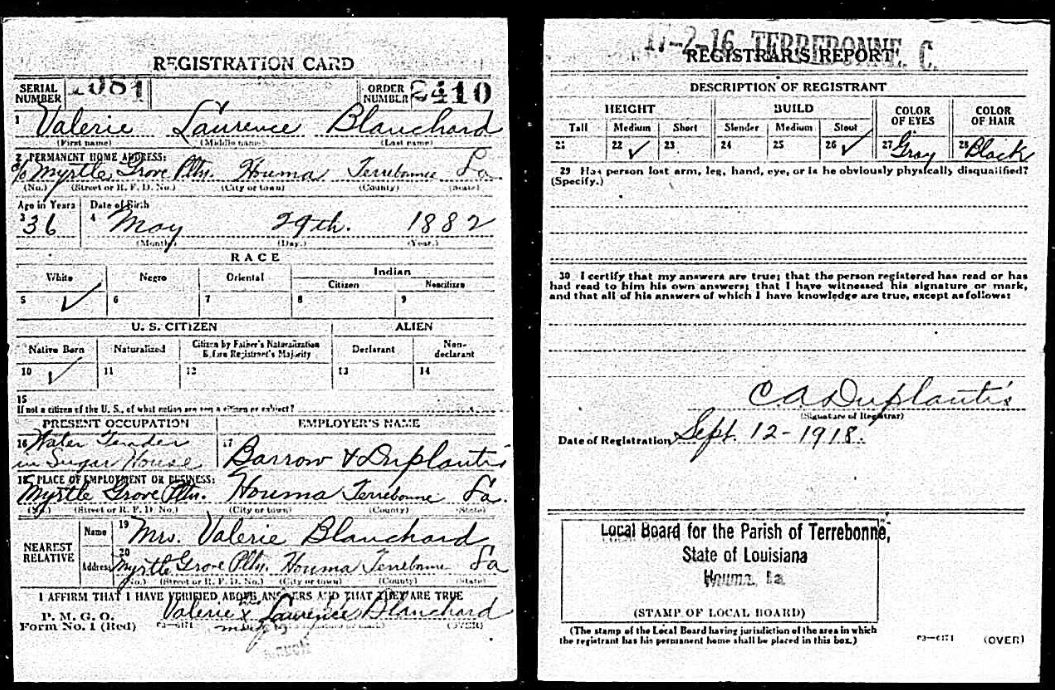 REGISTRATION CARD
SERIAL NUMBER 1081 ORDER NUMBER 2410
1 Valerie Laurence Blanchard
(First name) (Middle name) (Last name)
2 PERMANENT HOME ADDRESS:
c/o Myrtle Grove Pltn. Houma Terrebonne La.
(No.) (Street or R. F. D. No.) (City or town) (County) (State)
Age in Years Date of Birth
3 36 4 May 29th. 1882
(Month) (Day.) (Year.)
RACE
White Negro Oriental Indian
Citizen Noncitizen
5 ✓ 6 7 8 9
U. S. CITIZEN ALIEN
Native Born Naturalized Citizen by Father's Naturalization Before Registrant's Majority Declarant Non-declarant
10 ✓ 11 12 13 14
15
If not a citizen of the U. S., of what nation are you a citizen or subject?
PRESENT OCCUPATION EMPLOYER'S NAME
16 Water Tender 17
in Sugar House Barrow & Duplantis
18 PLACE OF EMPLOYMENT OR BUSINESS:
Myrtle Grove Pltn. Houma Terrebonne La.
(No.) (Street or R. F. D. No.) (City or town) (County) (State)
NEAREST RELATIVE Name 19 Mrs. Valerie Blanchard
Address 20 Myrtle Grove Pltn. Houma Terrebonne La
(No.) (Street or R. F. D. No.) (City or town) (County) (State)
I AFFIRM THAT I HAVE VERIFIED ABOVE ANSWERS AND THAT THEY ARE TRUE
P. M. G. O.
Form No. 1 (Red) 03—6171 Valerie x Laurence Blanchard
(OVER)
17-2-16 TERREBONNE C.
REGISTRAR'S REPORT
DESCRIPTION OF REGISTRANT
HEIGHT BUILD COLOR OF EYES COLOR OF HAIR
Tall Medium Short Slender Medium Stout
21 22 ✓ 23 24 25 26 ✓ 27 Gray 28 Black
29 Has person lost arm, leg, hand, eye, or is he obviously physically disqualified?
(Specify.)
30 I certify that my answers are true; that the person registered has read or has
had read to him his own answers; that I have witnessed his signature or mark,
and that all of his answers of which I have knowledge are true, except as follows:
C A Duplantis
(Signature of Registrar)
Date of Registration Sept. 12-1918.
Local Board for the Parish of Terrebonne,
State of Louisiana
Houma, La
(STAMP OF LOCAL BOARD)
(The stamp of the Local Board having jurisdiction of the area in which
the registrant has his permanent home shall be placed in this box.) 03—6171 (OVER)